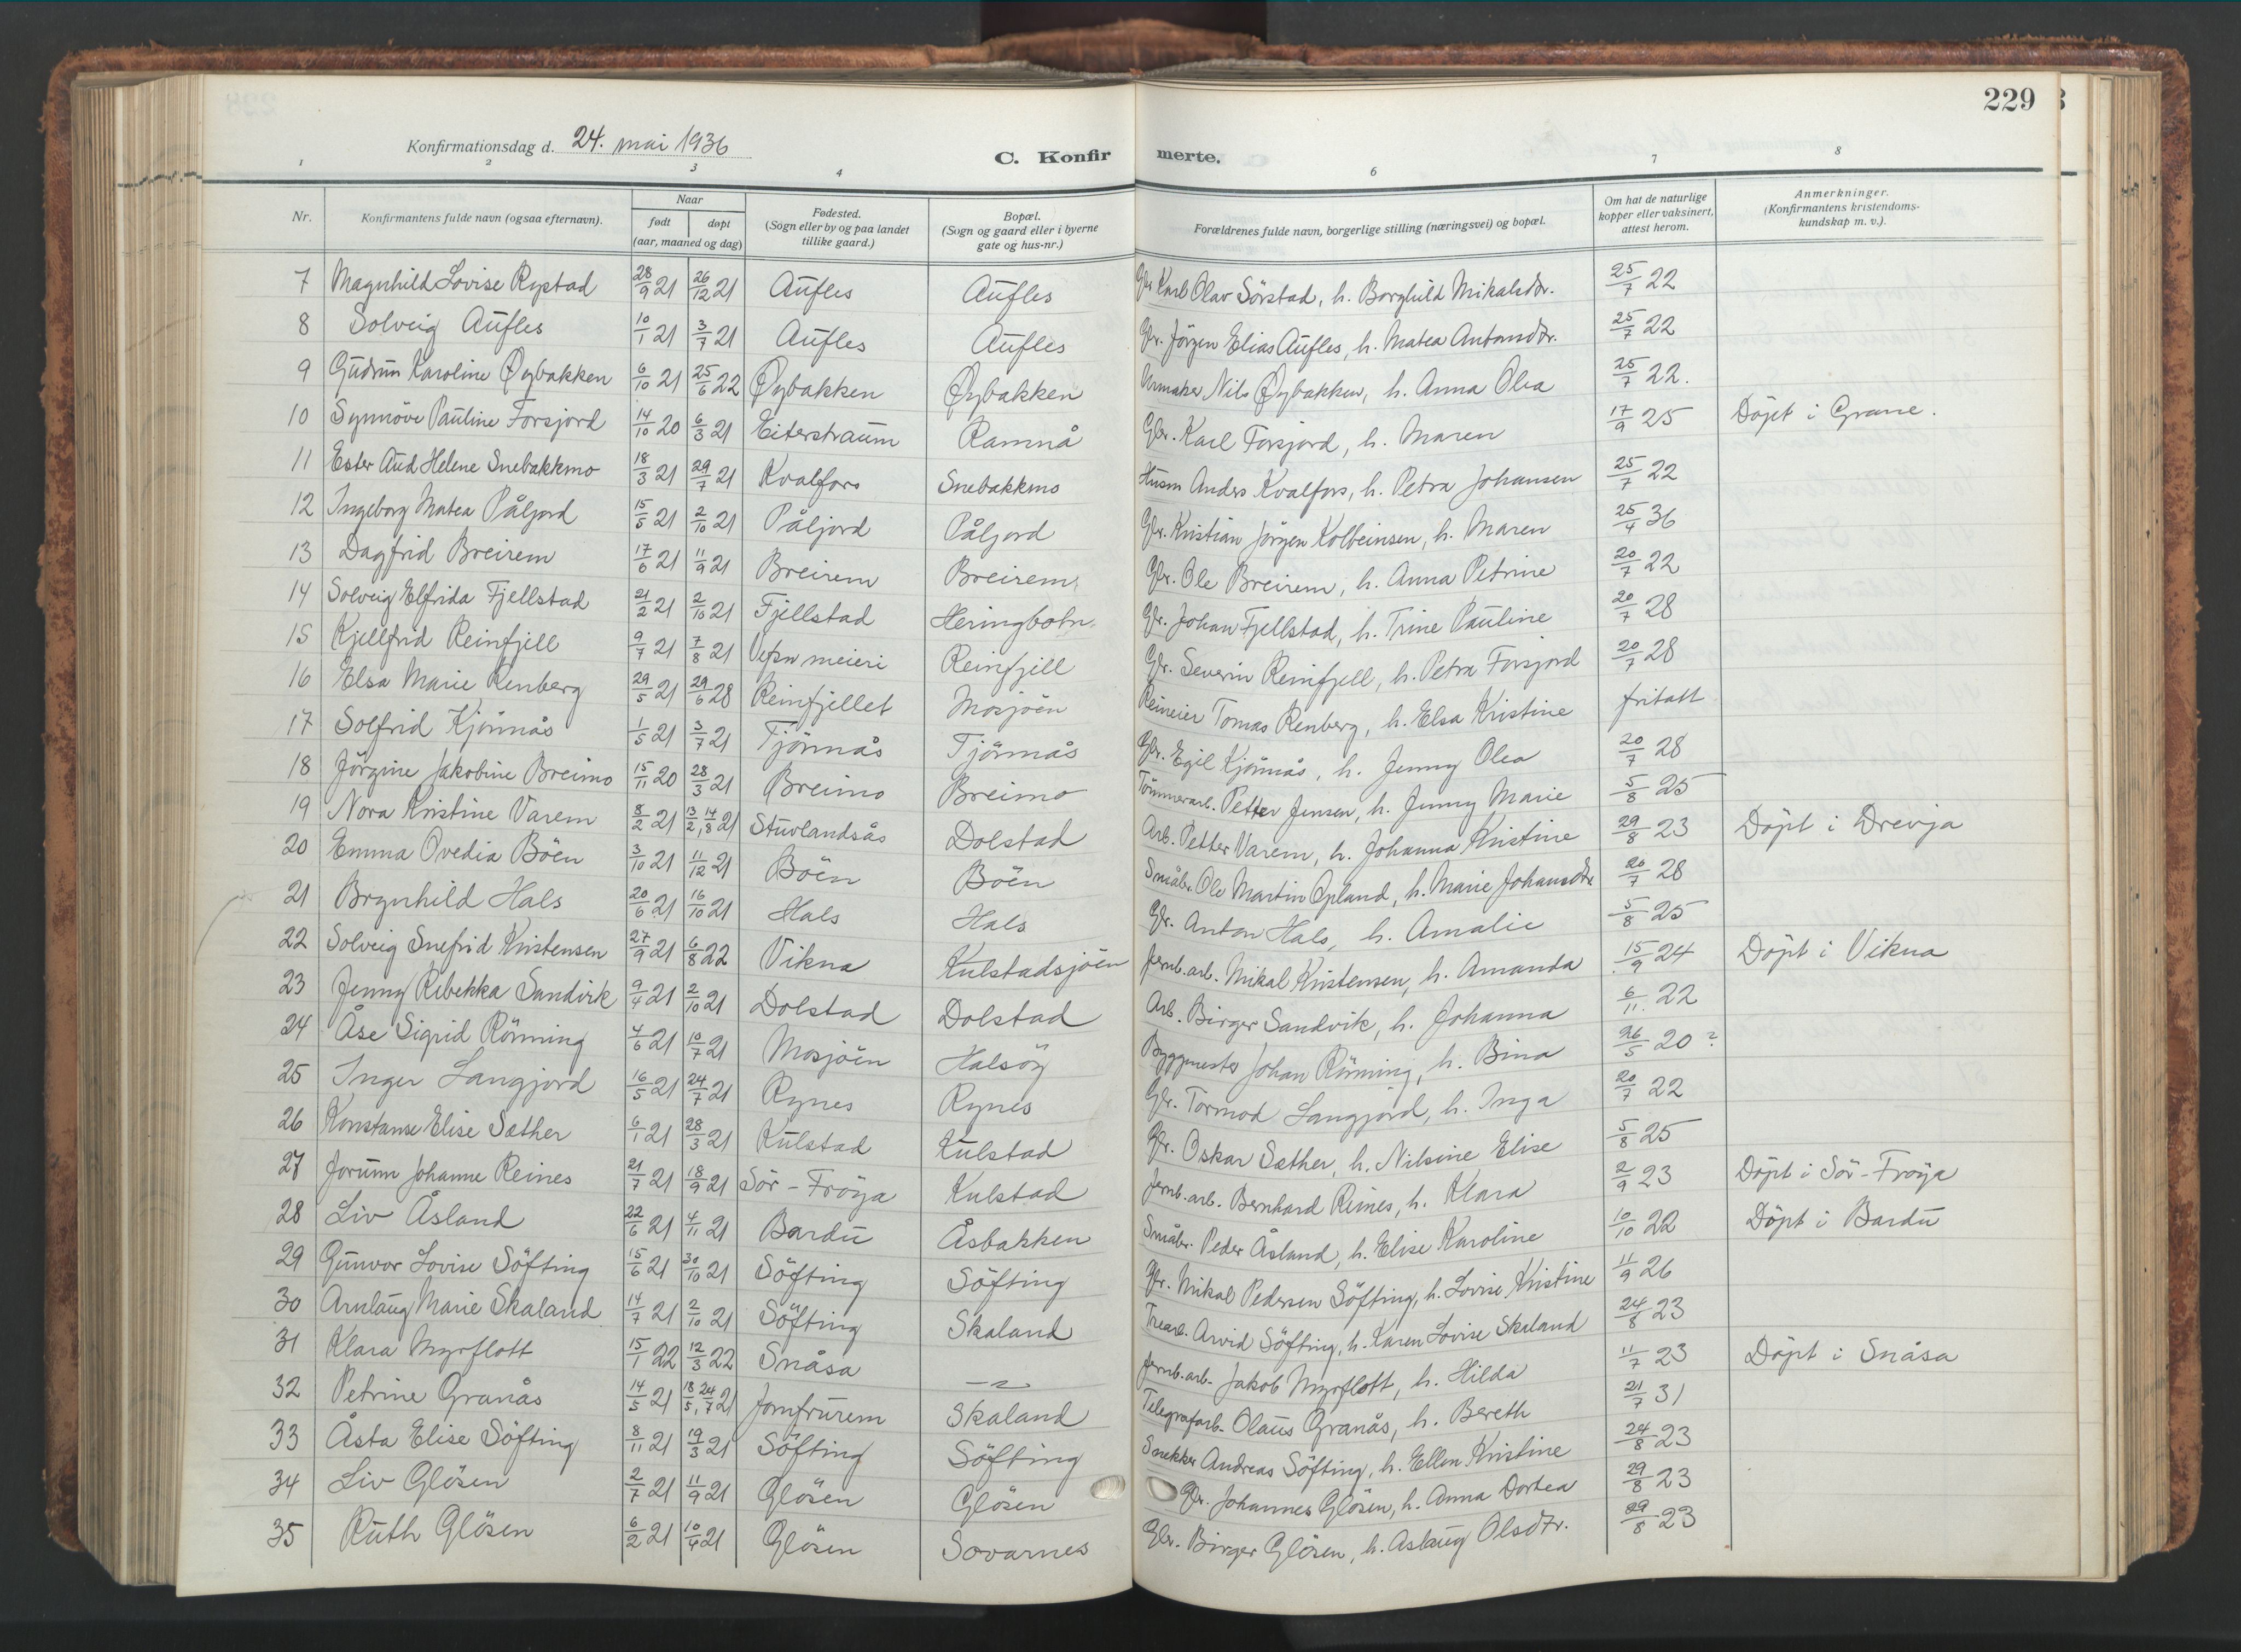 229
Konfirmationsdag d. 24. mai 1936
C. Konfir merte.
1 2 3 4 6 7 8
Nr. Konfirmantens fulde navn (ogsaa efternavn). Naar født døpt (aar, maaned og dag) Fødested. (Sogn eller by og paa landet tillike gaard.) Bopæl. (Sogn og gaard eller i byerne gate og hus-nr.) Forældrenes fulde navn, borgerlige stilling (næringsvei) og bopæl. Om hat de naturlige kopper eller vaksinert, attest herom. Anmerkninger. (Konfirmantens kristendoms-kundskap m. v.).
7 Magnhild Lovise Rystad 28/9 21 26/12 21 Aufles Aufles Gbr Karl Olav Sörstad, h. Borghild Mikalsdtr. 25/7 22
8 Solveig Aufles 10/1 21 3/7 21 Aufles Aufles Gbr. Jörgen Elias Aufles, h. Matea Antonsdtr. 25/7 22
9 Gudrun Karoline Øybakken 6/10 21 25/6 22 Øybakken Øybakken Urmaker Nils Øybakken, h. Anna Olea 25/7 22.
10 Synnöve Pauline Forsjord 14/10 20 6/3 21 Eiterstraum Ramnå Gbr. Karl Forsjord, h. Maren 17/9 25 Döpt i Grane.
11 Ester Aud Helene Snebakkmo 18/3 21 29/7 21 Kvalfors Snebakkmo Husm Anders Kvalfors, h. Petra Johansen 25/7 22
12 Ingeborg Matea Påljord 15/5 21 2/10 21 Påljord Påljord Gbr. Kristian Jörgen Kolbeinsen, h. Maren 25/4 36
13 Dagfrid Breirem 17/6 21 11/9 21 Breirem Breirem Gbr. Ole Breirem, h. Anna Petrine 20/7 22
14 Solveig Elfrida Fjellstad 21/2 21 2/10 21 Fjellstad Heringbotn. Gbr. Johan Fjellstad, h. Trine Pauline 20/7 28
15 Kjellfrid Reinfjell 9/7 21 7/8 21 Vefsn meieri Reinfjell Gbr. Severin Reinfjell, h. Petra Forsjord 20/7 28
16 Elsa Marie Renberg 29/5 21 29/6 28 Reinfjellet Mosjöen Reineier Tomas Renberg, h. Elsa Kristine fritatt
17 Solfrid Kjönnås 1/5 21 3/7 21 Tjönnås Tjönnås Gbr. Egil Kjönnås, h. Jenny Olea 20/7 28
18 Jörgine Jakobine Breimo 15/11 20 28/3 21 Breimo Breimo Tömmerarb. Petter Jensen, h. Jenny Marie 5/8 25
19 Nora Kristine Varem 8/2 21 13/2, 14/8 21 Stuvlandsås Dolstad Arb. Petter Varem, h. Johanna Kristine 29/8 23 Döpt i Drevja
20 Emma Ovedia Böen 3/10 21 11/12 21 Böen Böen Småbr. Ole Martin Opland, h. Marie Johansdtr 20/7 28
21 Brynhild Hals 20/6 21 16/10 21 Hals Hals Gbr. Anton Hals, h. Amalie 5/8 25
22 Solveig Snefrid Kristensen 27/9 21 6/8 22 Vikna Kulstadsjöen Jernb.arb. Mikal Kristensen, h. Amanda 15/9 24 Döpt i Vikna
23 Jenny Rebekka Sandvik 9/4 21 2/10 21 Dolstad Dolstad Arb. Birger Sandvik, h. Johanna 6/11 22
24 Åse Sigrid Rönning 4/6 21 10/7 21 Mosjöen Halsöy Byggmester Johan Rönning, h. Bina 26/5 20?
25 Inger Langjord 16/5 21 24/7 21 Rynes Rynes Gbr. Tormod Langjord, h. Inga 20/7 22
26 Konstanse Elise Sæther 6/1 21 28/3 21 Kulstad Kulstad Gbr. Oskar Sæther, h. Nilsine Elise 5/8 25
27 Jorunn Johanne Reines 21/7 21 18/9 21 Sör-Fröya Kulstad Jernb.arb. Bernhard Reines, h. Klara 2/9 23 Döpt i Sör-Fröya
28 Liv Åsland 22/6 21 4/11 21 Bardu Åsbakken Småbr. Peder Åsland, h. Elise Karoline 10/10 22 Döpt i Bardu
29 Gunvor Lovise Söfting 15/6 21 30/10 21 Söfting Söfting Gbr. Mikal Pedersen Söfting, h. Lovise Kristine 11/9 26
30 Arnlaug Marie Skaland 14/7 21 2/10 21 Söfting Skaland Trearb. Arvid Söfting, h. Karen Lovise Skaland 24/8 23
31 Klara Myrflott 15/1 22 12/3 22 Snåsa —"— Jernb.arb. Jakob Myrflott, h. Hilda 11/7 23 Döpt i Snåsa
32 Petrine Granås 14/5 21 18/5, 24/7 21 Jomfrurem Skaland Telegrafarb. Olaus Granås, h. Bereth 21/7 31
33 Åsta Elise Söfting 8/11 21 19/3 21 Söfting Söfting Snekker Andreas Söfting, h. Ellen Kristine 24/8 23
34 Liv Glösen 2/7 21 11/9 21 Glösen Glösen Gbr. Johannes Glösen, h. Anna Dortea 29/8 23
35 Ruth Glösen 6/2 21 10/4 21 Glösen Sovarnes Gbr. Birger Glösen, h. Aslaug Olsdtr. 29/8 23